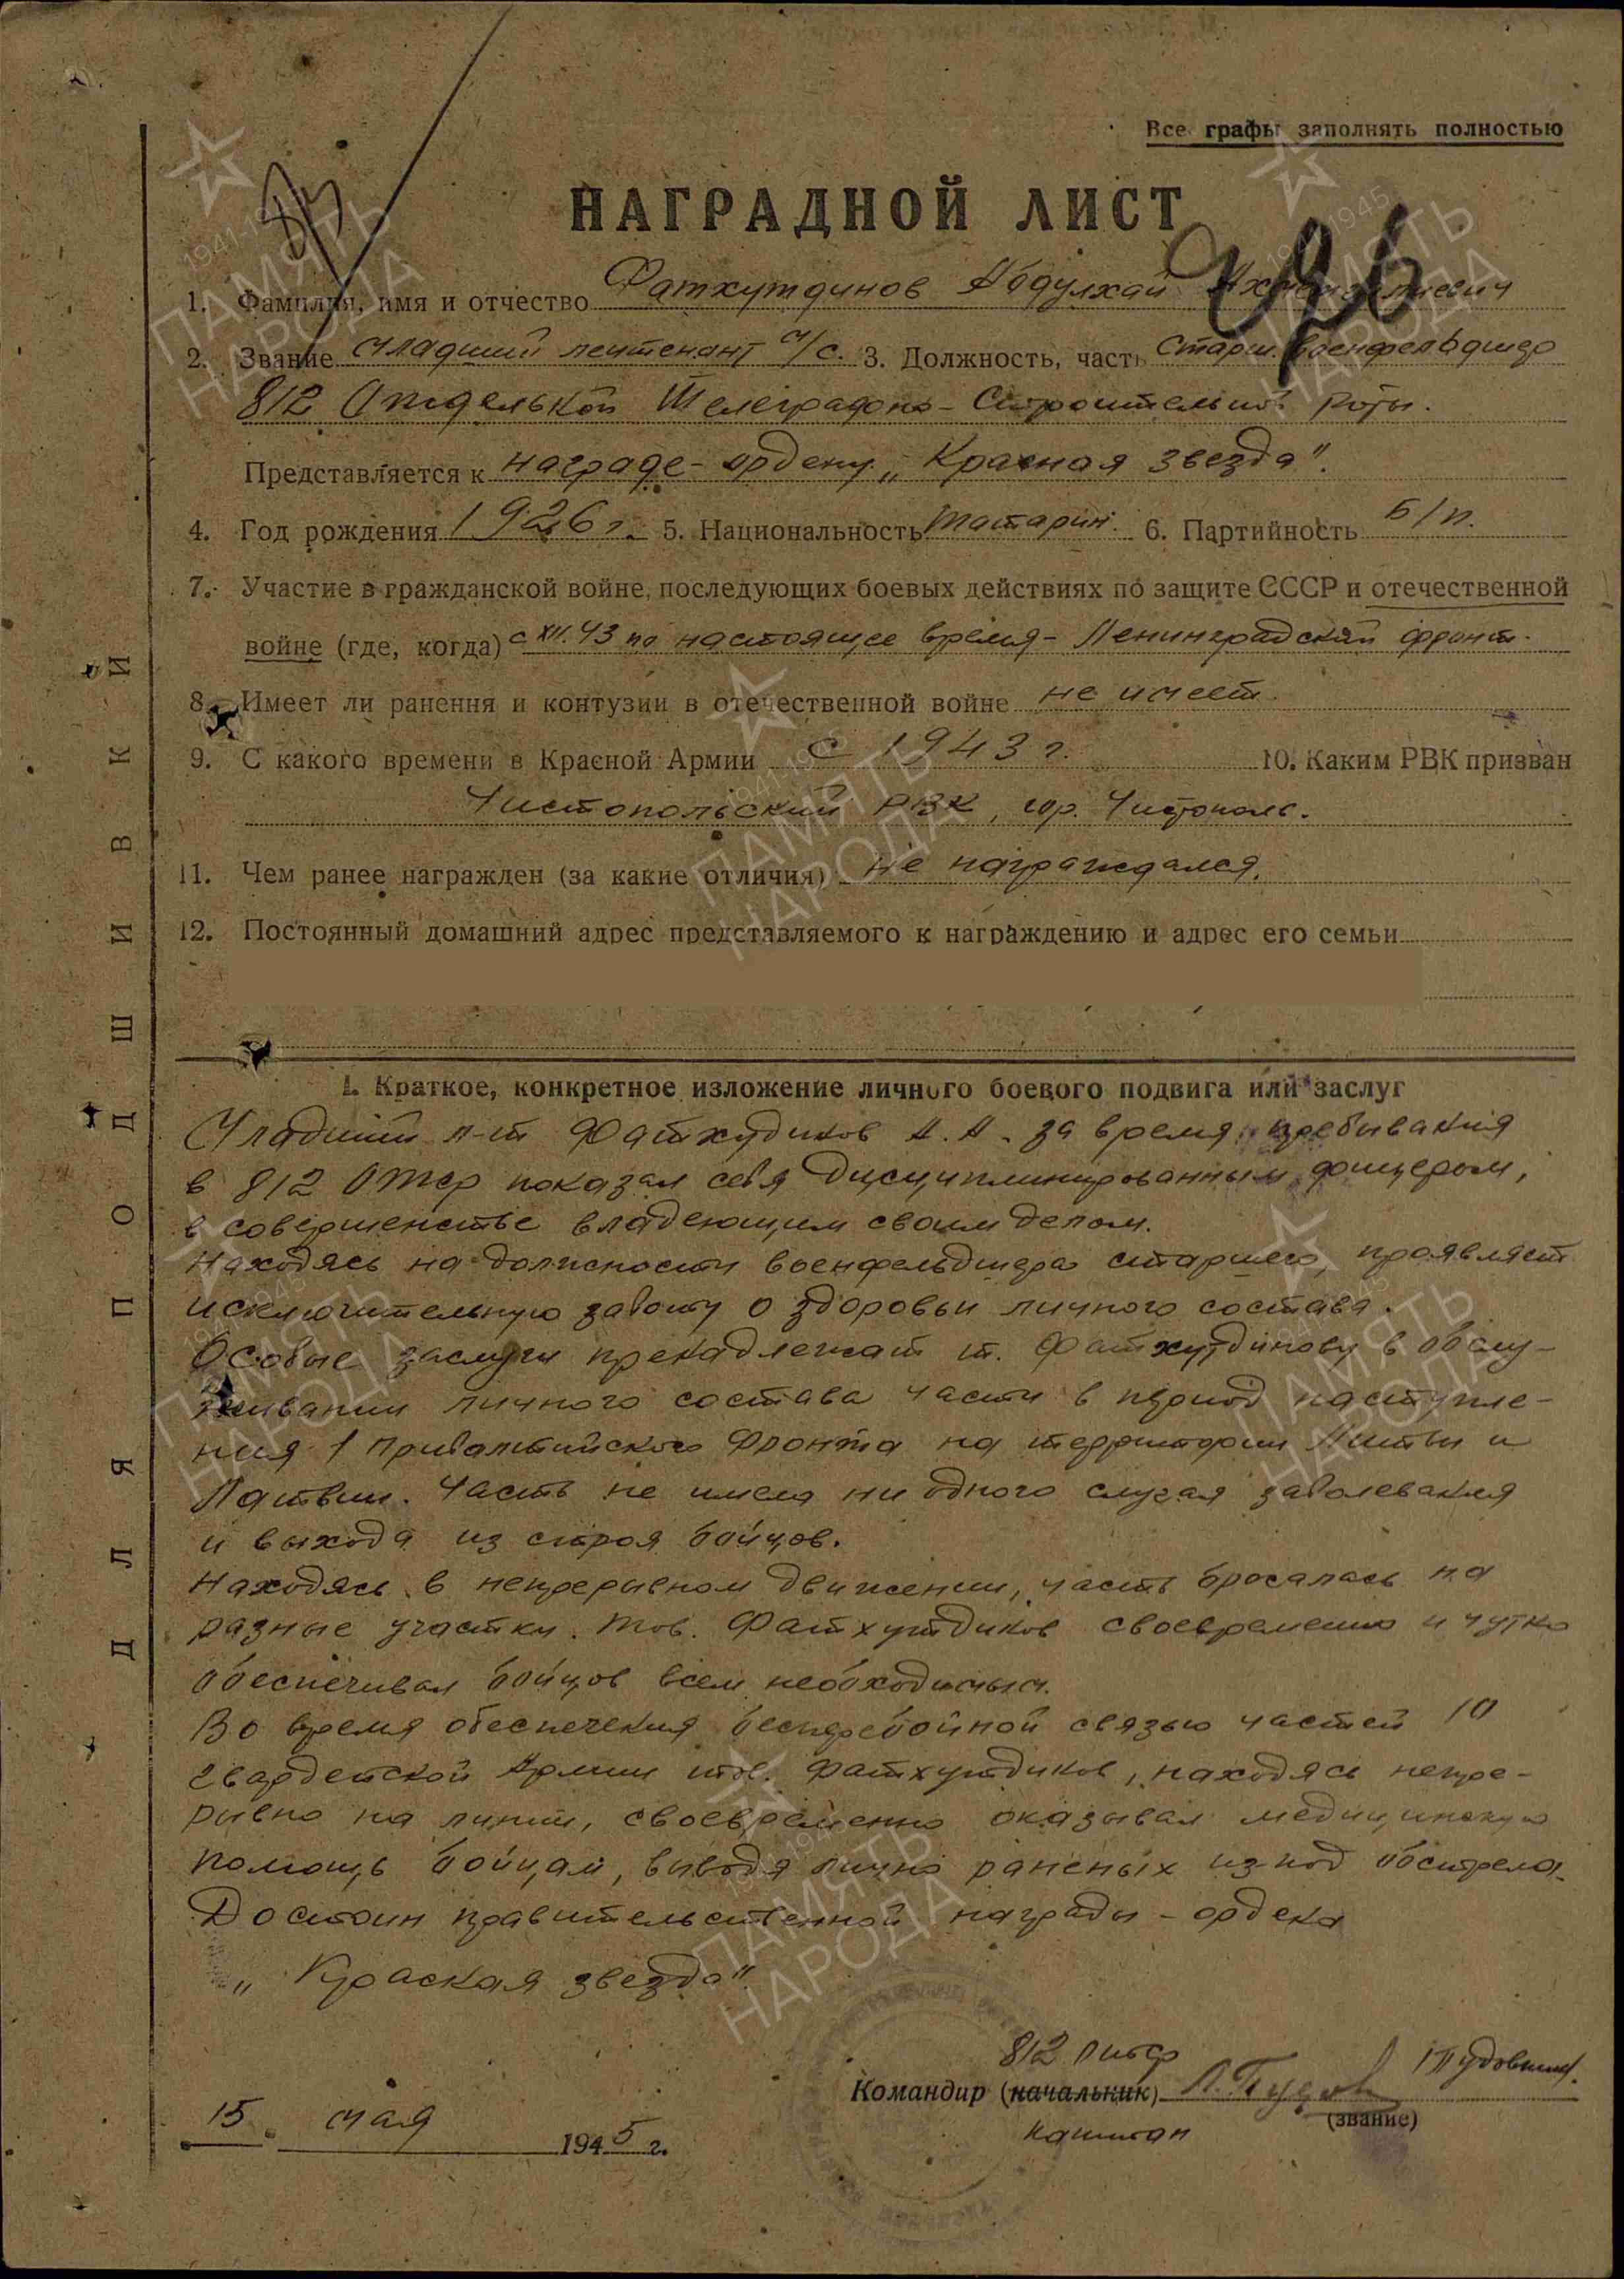 Все графы заполнять полностью
НАГРАДНОЙ ЛИСТ
1. Фамилия, имя и отчество Фатхутдинов Абдулхай
2. Звание младший лейтенант м/с. 3. Должность, часть Старш. военфельдшер
812 Отдельной Телеграфно-Строительной Роты.
Представляется к награде - ордену „Красная звезда".
4. Год рождения 1926 г. 5. Национальность татарин. 6. Партийность б/п.
7. Участие в гражданской войне, последующих боевых действиях по защите СССР и отечественной
войне (где, когда) с XII.43 по настоящее время - Ленинградский фронт.
8. Имеет ли ранения и контузии в отечественной войне не имеет.
9. С какого времени в Красной Армии с 1943 г. 10. Каким РВК призван
Чистопольский РВК, гор. Чистополь.
11. Чем ранее награжден (за какие отличия) не награждался.
12. Постоянный домашний адрес представляемого к награждению и адрес его семьи
I. Краткое, конкретное изложение личного боевого подвига или заслуг
Младший л-т Фатхудинов А.А. за время пребывания
в 812 ОТСР показал себя дисциплинированным офицером,
в совершенстве владеющим своим делом.
Находясь на должности военфельдшера старшего, проявляет
исключительную заботу о здоровьи личного состава.
Особые заслуги пренадлежат т. Фатхутдинову в обслу-
живании личного состава части в период наступле-
ния 1 Прибалтийского Фронта на территории Литвы и
Латвии. Часть не имела ни одного случая заболевания
и выхода из строя бойцов.
Находясь в непрерывном движении, часть бросалась на
разные участки. Тов. Фатхутдинов своевременно и чутко
обеспечивал бойцов всем необходимым.
Во время обеспечения бесперебойной связью частей 10
Гвардейской Армии тов. Фатхутдинов, находясь непре-
рывно на линии, своевременно оказывал медицинскую
помощь бойцам, выводя лично раненых из под обстрела.
Достоин правительственной награды - ордена
„Красная звезда"
812
Командир (начальник)
капитан
(звание)
15 мая 1945 г.
ДЛЯ ПОДШИВКИ
1941-1945
ПАМЯТЬ
НАРОДА